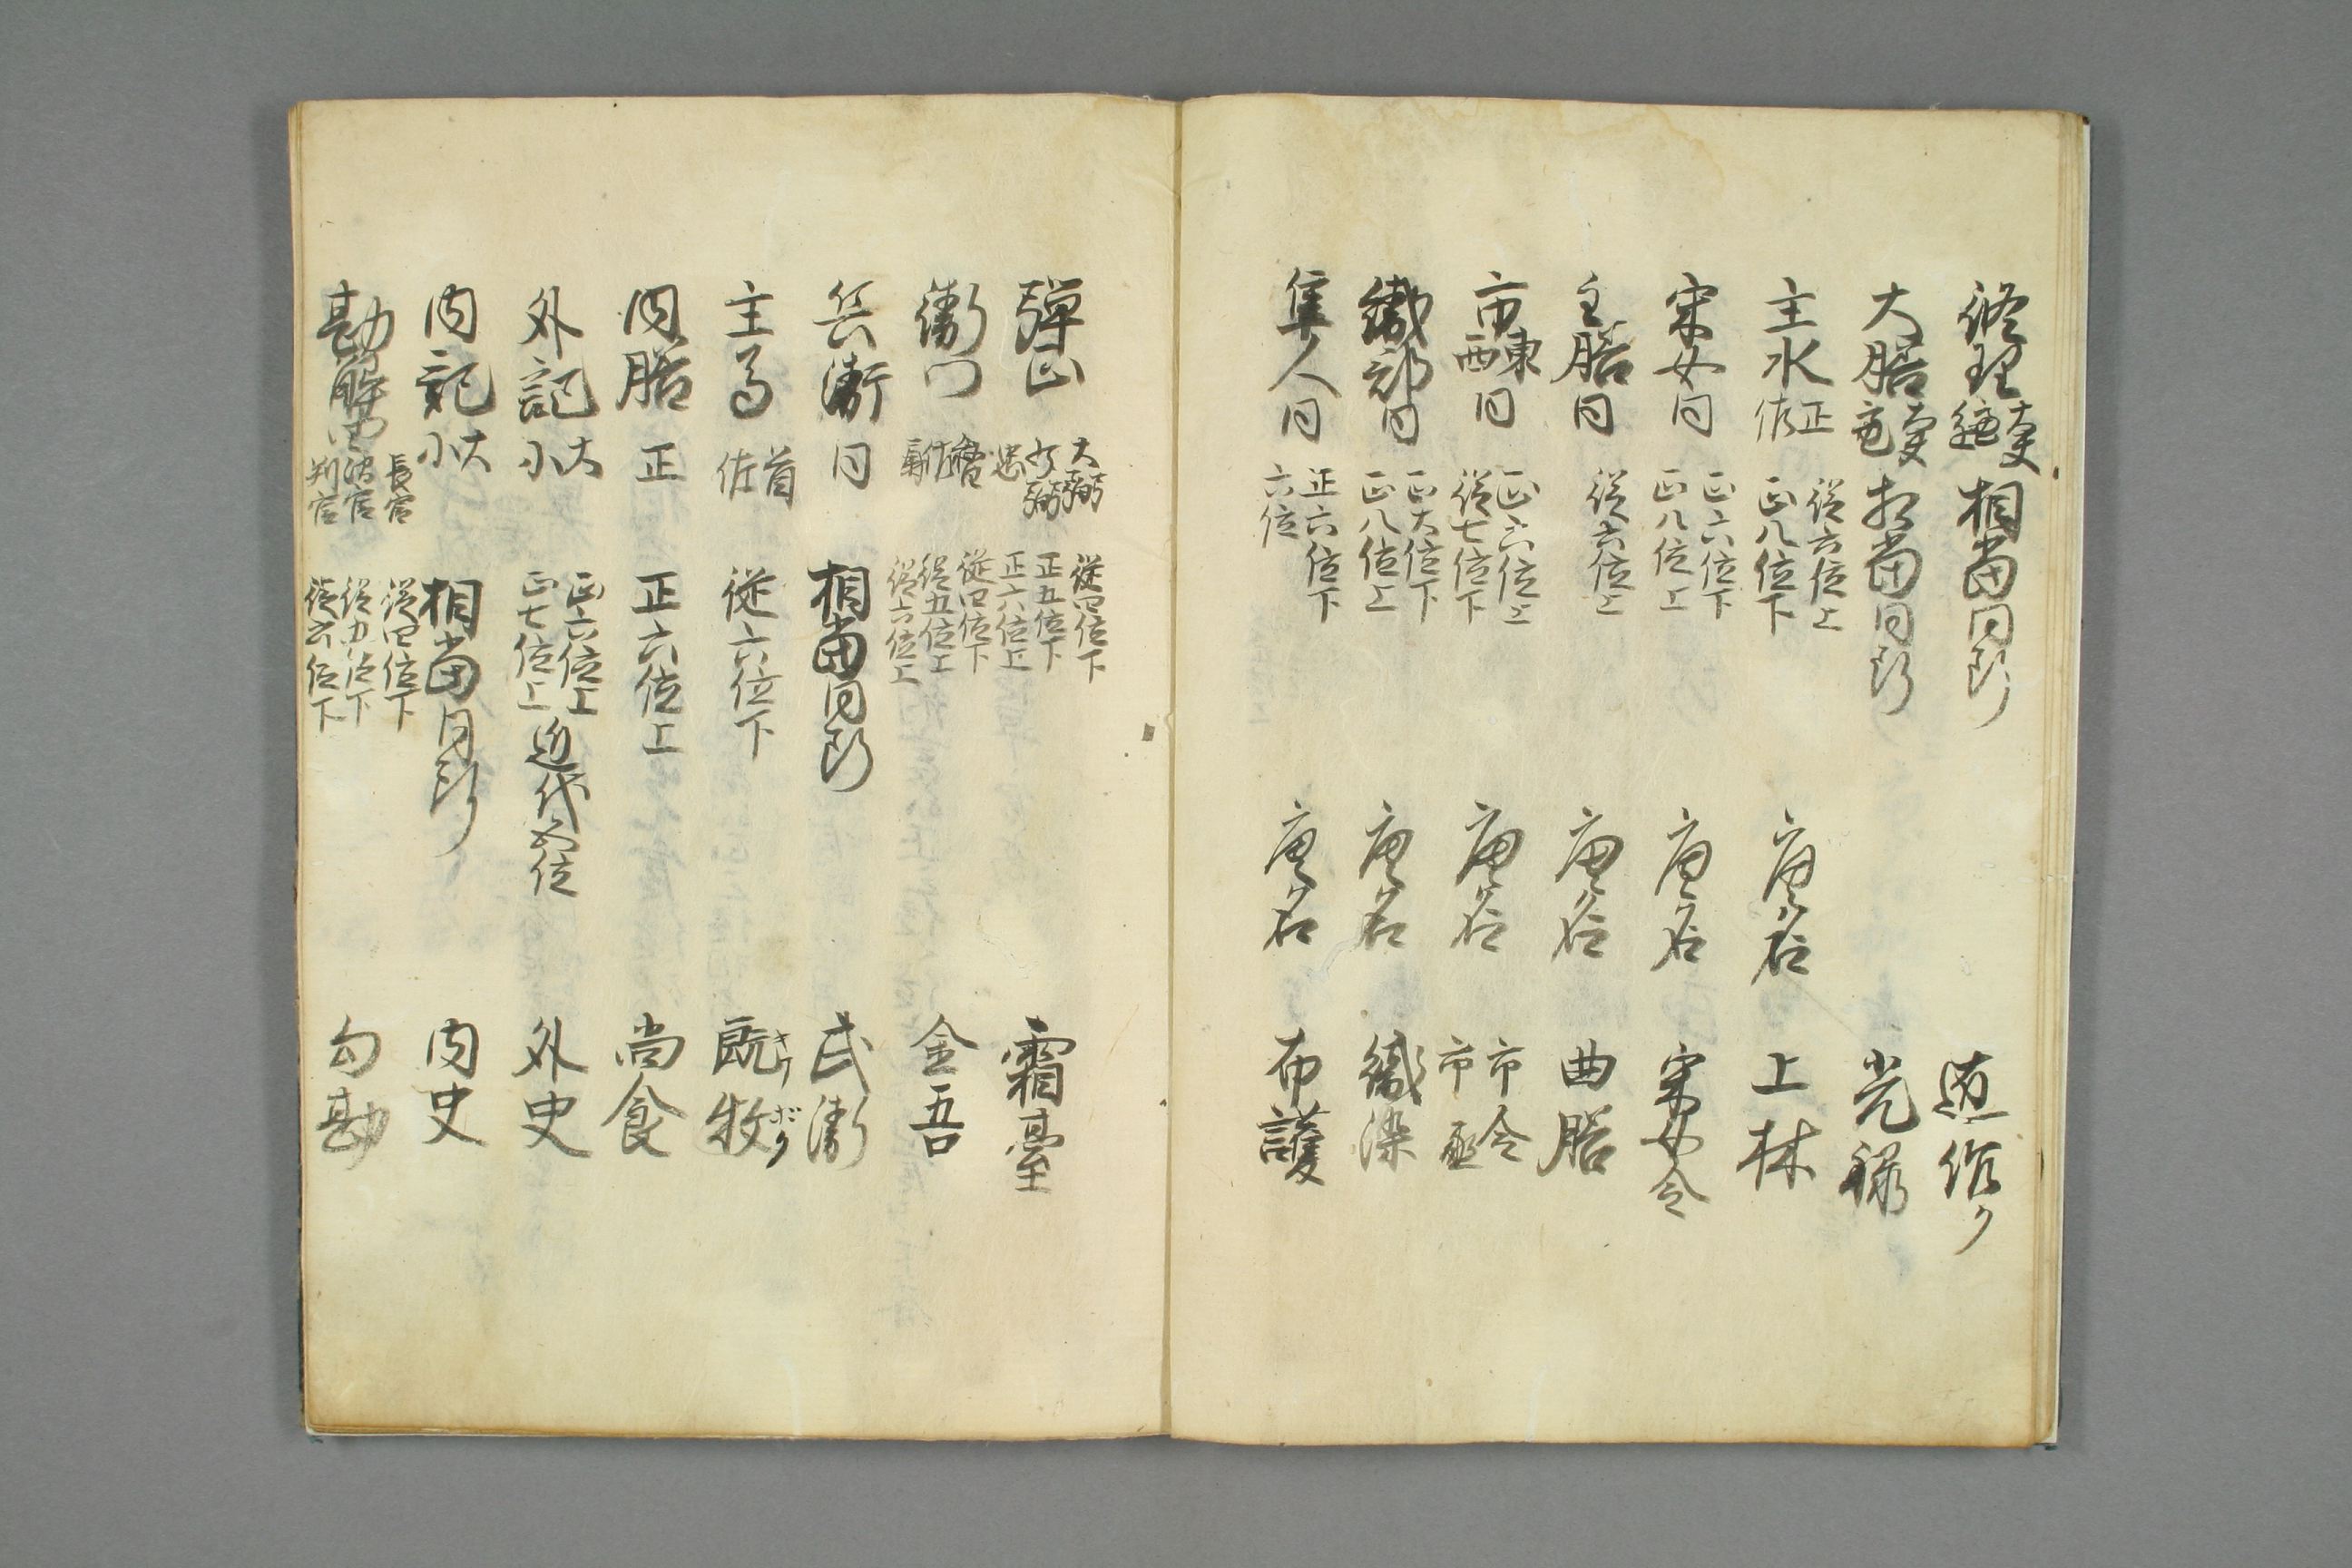 修理 大夫 亮 相当同断 匠作ク
大膳 大夫 亮 相当同断 光禄
主水 正 佑 従六位上 正八位下 唐名 上林
采女 同 正六位下 正八位上 唐名 采女令
主膳 同 従六位上 唐名 曲膳
市 東 西 同 正六位上 従七位下 唐名 市令 市丞
織部 同 正六位下 正八位上 唐名 織染
隼人 同 正六位下 六位 唐名 布護
弾正 大弼 少弼 忠 従四位下 正五位下 正六位上 霜臺
衛門 督 佐 尉 従四位下 従五位上 従六位上 金吾
兵衛 同 相當同断 武衛
主馬 首 佐 従六位下 厩牧 キウ ボク
内膳 正 正六位上 尚食
外記 大 小 正六位上 正七位上 近代五位 外史
内記 大 小 相當同断 内史
勘解由 長官 次官 判官 従四位下 従五位下 従六位下 勾勘